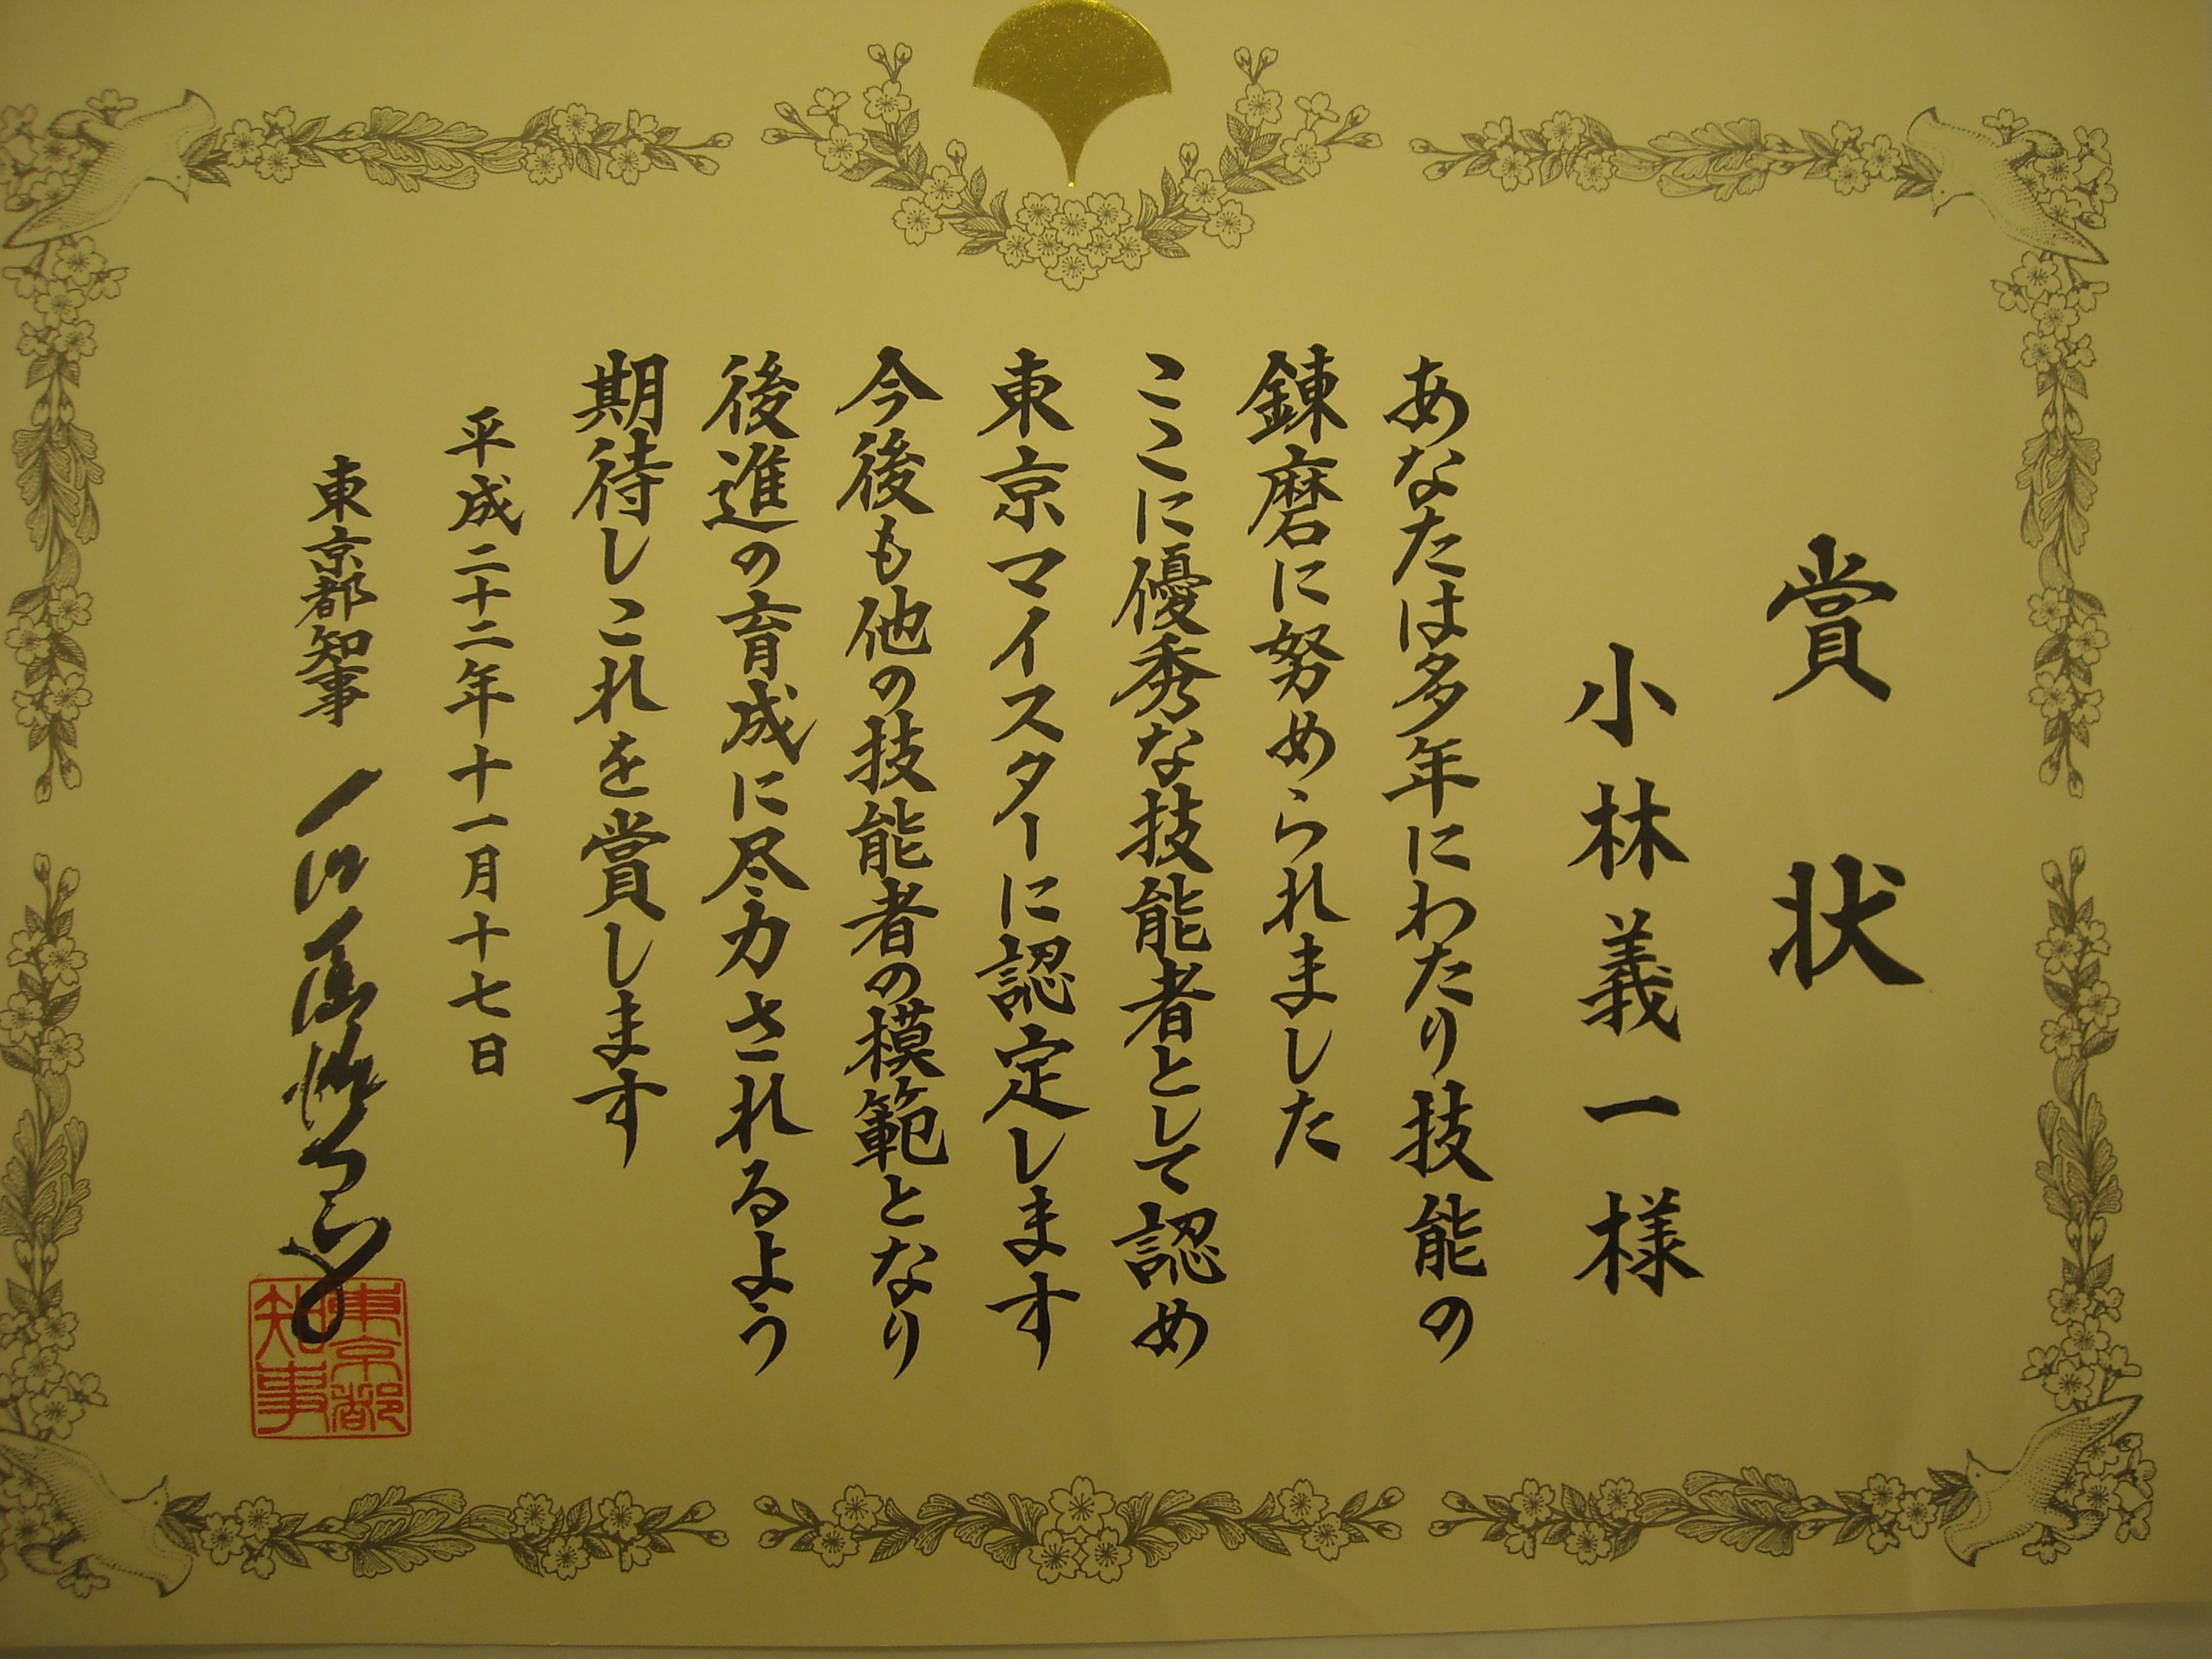 賞状
小林義一様
あなたは多年にわたり技能の
錬磨に努められました
ここに優秀な技能者として認め
東京マイスターに認定します
今後も他の技能者の模範となり
後進の育成に尽力されるよう
期待しこれを賞します
平成二十二年十一月十七日
東京都知事 石原慎太郎
東京都
知事